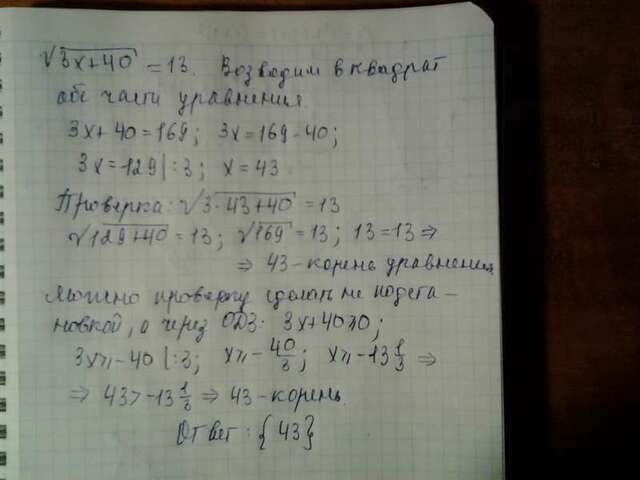 √3x+40 = 13. Возводим в квадрат
обе части уравнения.
3x+40=169; 3x=169-40;
3x=129|:3; x=43
Проверка: √3·43+40 = 13
√129+40 = 13; √169 = 13; 13=13 ⇒
⇒ 43-корень уравнения
Можно проверку сделать не подста-
новкой, а через ОДЗ: 3x+40⩾0;
3x⩾-40|:3; x⩾-40/3; x⩾-13 1/3 ⇒
⇒ 43>-13 1/3 ⇒ 43-корень.
Ответ: {43}